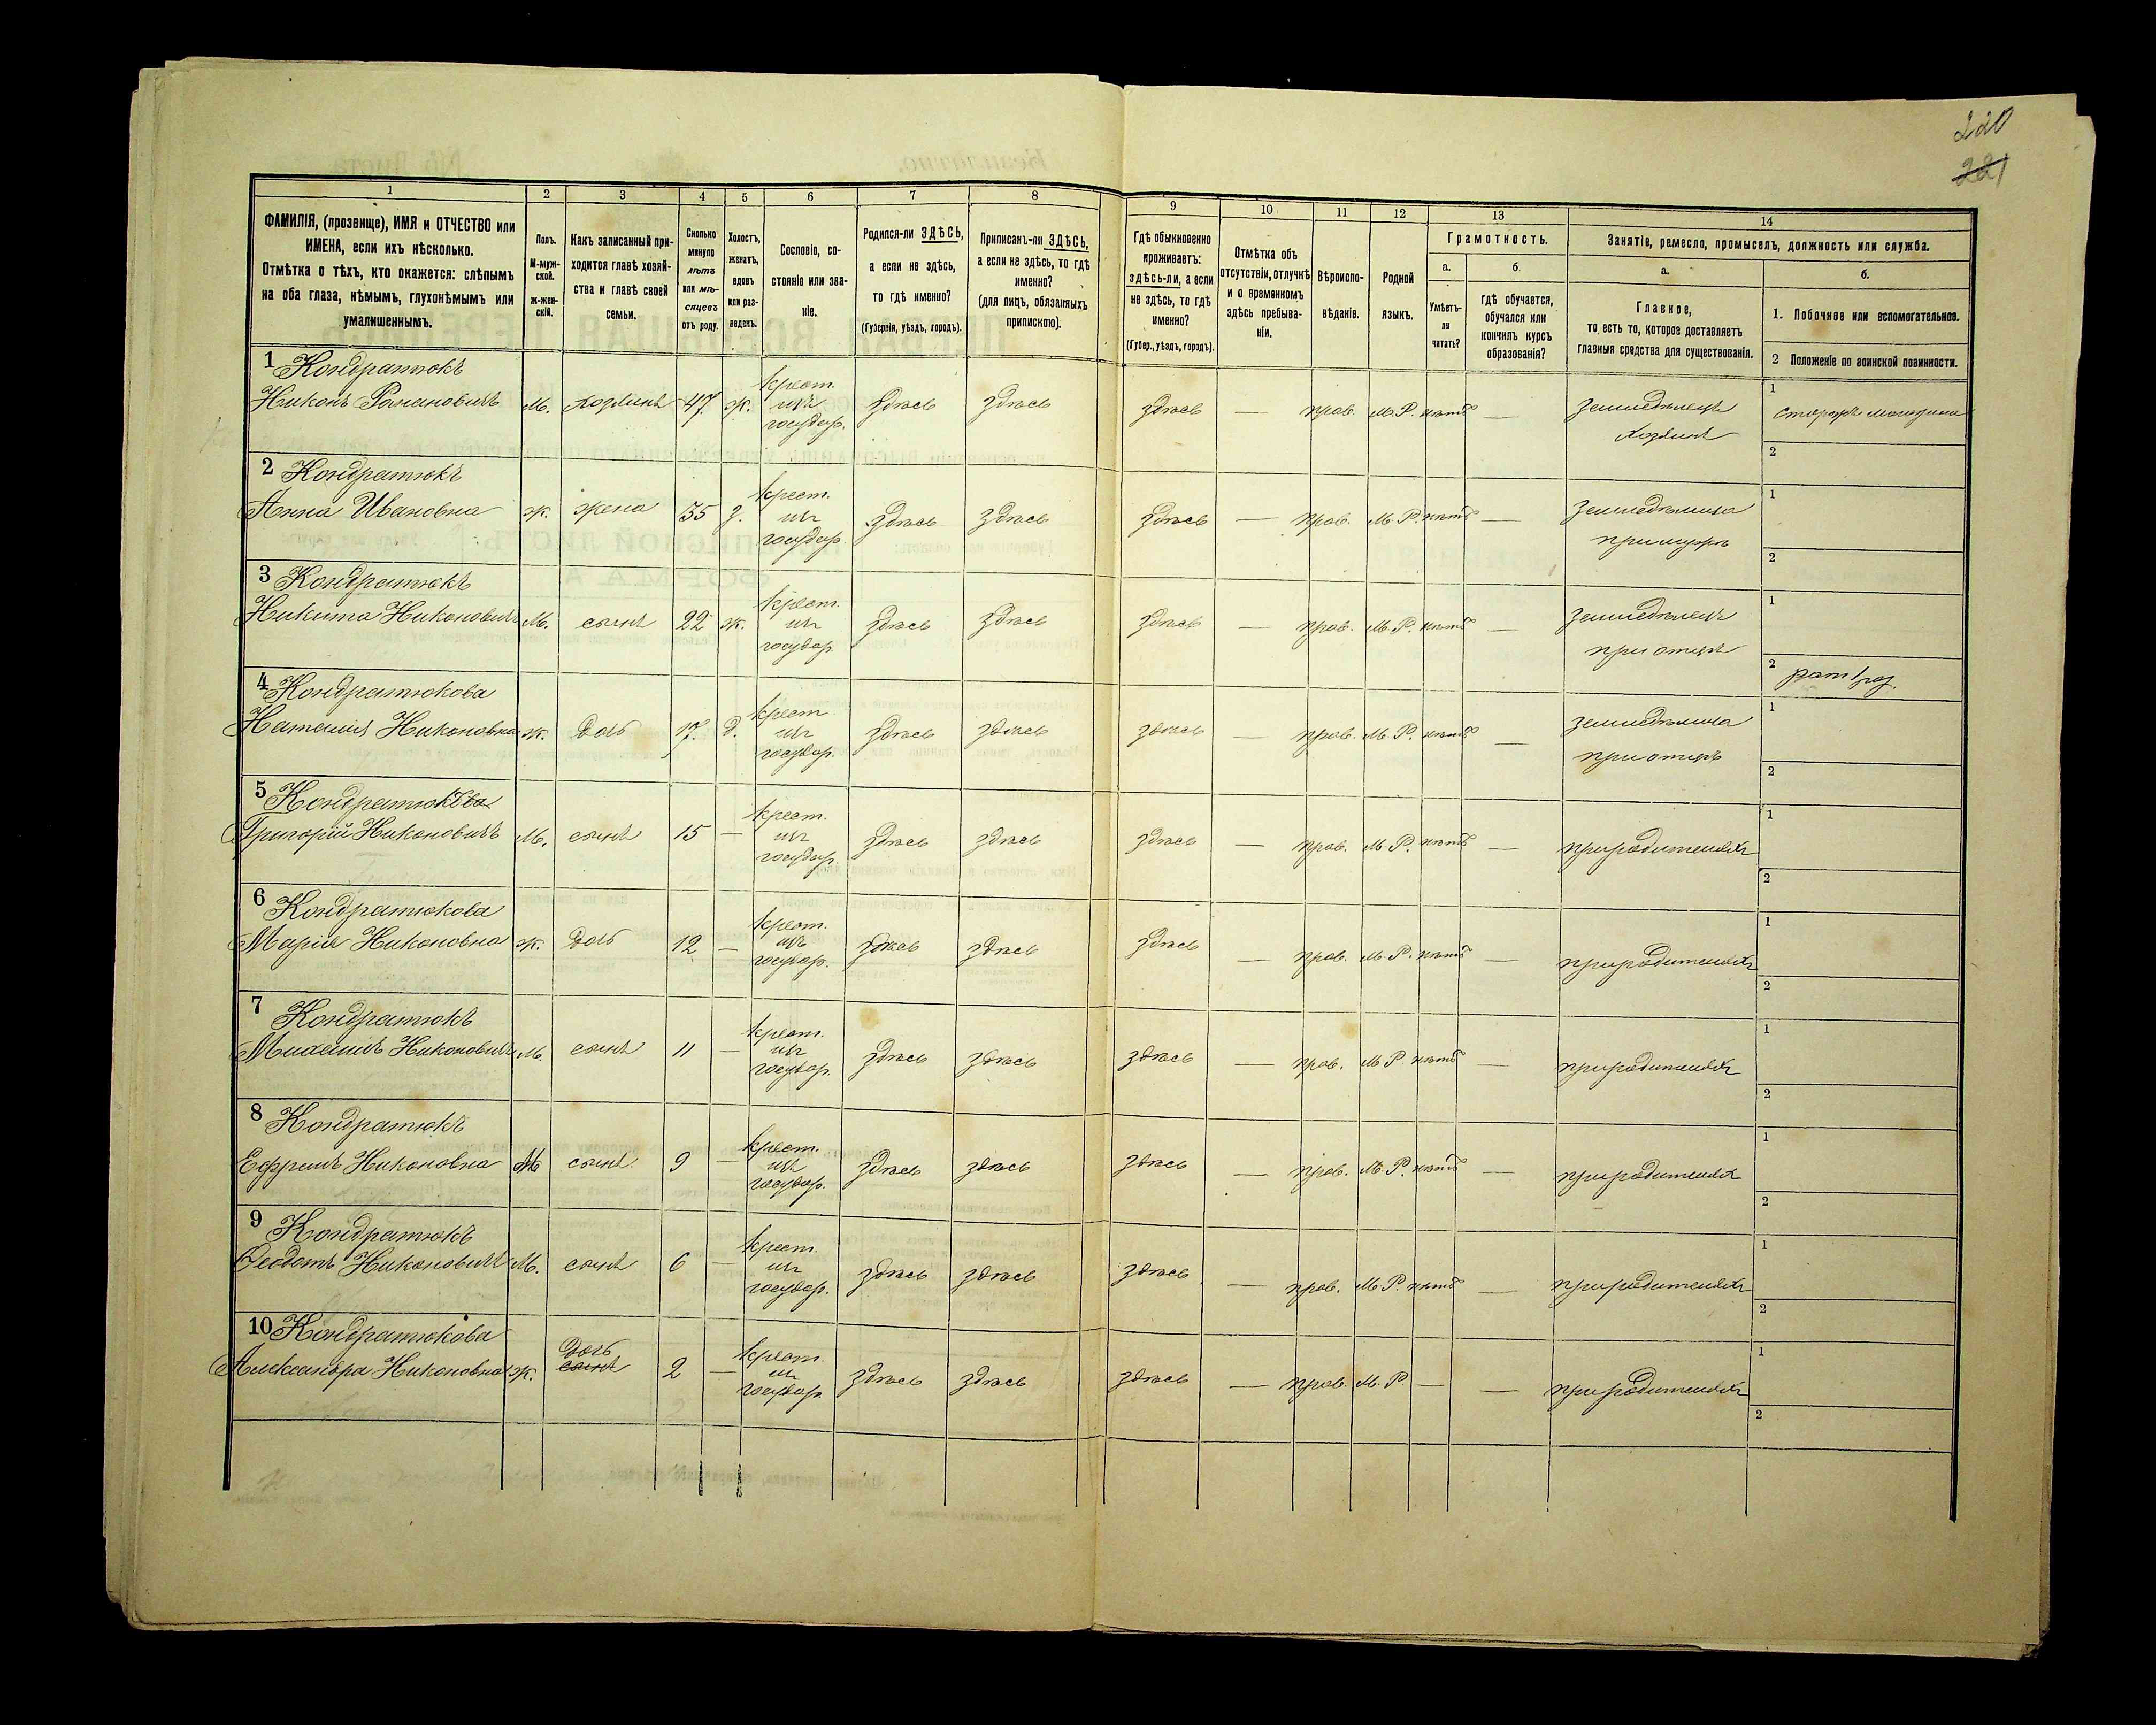 220
221
1 2 3 4 5 6 7 8 9 10 11 12 13 14
ФАМИЛІЯ, (прозвище), ИМЯ и ОТЧЕСТВО или
ИМЕНА, если ихъ нѣсколько.
Отмѣтка о тѣхъ, кто окажется: слѣпымъ
на оба глаза, нѣмымъ, глухонѣмымъ или
умалишеннымъ.
Полъ.
М-муж-
ской.
ж-жен-
скій.
Какъ записанный при-
ходится главѣ хозяй-
ства и главѣ своей
семьи.
Сколько
минуло
лѣтъ
или мѣ-
сяцевъ
отъ роду.
Холостъ,
женатъ,
вдовъ
или раз-
веденъ.
Сословіе, со-
стояніе или зва-
ніе.
Родился-ли ЗДѢСЬ,
а если не здѣсь,
то гдѣ именно?
(Губернія, уѣздъ, городъ).
Приписанъ-ли ЗДѢСЬ,
а если не здѣсь, то гдѣ
именно?
(для лицъ, обязанныхъ
припискою).
Гдѣ обыкновенно
проживаетъ:
здѣсь-ли, а если
не здѣсь, то гдѣ
именно?
(Губер., уѣздъ, городъ).
Отмѣтка объ
отсутствіи, отлучкѣ
и о временномъ
здѣсь пребыва-
ніи.
Вѣроиспо-
вѣданіе.
Родной
языкъ.
Грамотность.
а.
Умѣетъ-
ли
читать?
б.
гдѣ обучается,
обучался или
кончилъ курсъ
образованія?
Занятіе, ремесло, промыселъ, должность или служба.
а.
Главное,
то есть то, которое доставляетъ
главныя средства для существованія.
б.
1. Побочное или вспомогательное.
2 Положеніе по воинской повинности.
1 Кондратюкъ
Никонъ Романовичъ М. хозяинъ 47 ж. крест. изъ государ. здѣсь здѣсь здѣсь — прав. М.Р. нѣтъ — земледѣлецъ хозяинъ 1 сторожъ магазина
2
2 Кондратюкъ
Анна Ивановна ж. жена 35 з. крест. изъ государ. здѣсь здѣсь здѣсь — прав. М.Р. нѣтъ — земледѣлица при мужѣ 1
2
3 Кондратюкъ
Никита Никоновичъ М. сынъ 22 ж. крест. изъ государ. здѣсь здѣсь здѣсь — прав. М.Р. нѣтъ — земледѣлецъ при отцѣ 1
2 рат 1 раз.
4 Кондратюкова
Наталія Никоновна ж. дочь 17 д. крест изъ государ. здѣсь здѣсь здѣсь — прав. М.Р. нѣтъ — земледѣлица при отцѣ 1
2
5 Кондратюкъ
Григорій Никоновичъ М. сынъ 15 — крест. изъ государ. здѣсь здѣсь здѣсь — прав. М.Р. нѣтъ — при родителяхъ 1
2
6 Кондратюкова
Марія Никоновна ж. дочь 12 — крест. изъ государ. здѣсь здѣсь здѣсь — прав. М.Р. нѣтъ — при родителяхъ 1
2
7 Кондратюкъ
Михаилъ Никоновичъ М. сынъ 11 — крест. изъ государ. здѣсь здѣсь здѣсь — прав. М.Р. нѣтъ — при родителяхъ 1
2
8 Кондратюкъ
Ефремъ Никоновна М сынъ 9 — крест. изъ государ. здѣсь здѣсь здѣсь — прав. М.Р. нѣтъ — при родителяхъ 1
2
9 Кондратюкъ
Ѳеодотъ Никоновичъ М. сынъ 6 — крест. изъ государ. здѣсь здѣсь здѣсь — прав. М.Р. нѣтъ — при родителяхъ 1
2
10 Кондратюкова
Александра Никоновна ж. дочь сынъ 2 — крест. изъ государ. здѣсь здѣсь здѣсь — прав. М.Р. — — при родителяхъ 1
2